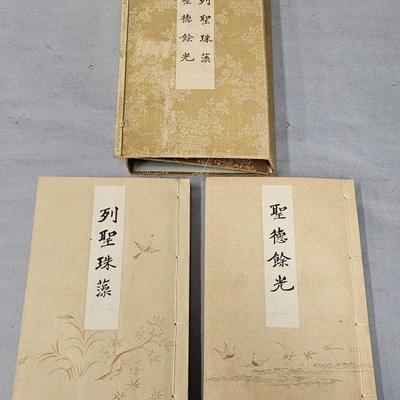 列聖珠藻
聖德餘光
列聖珠藻
聖德餘光